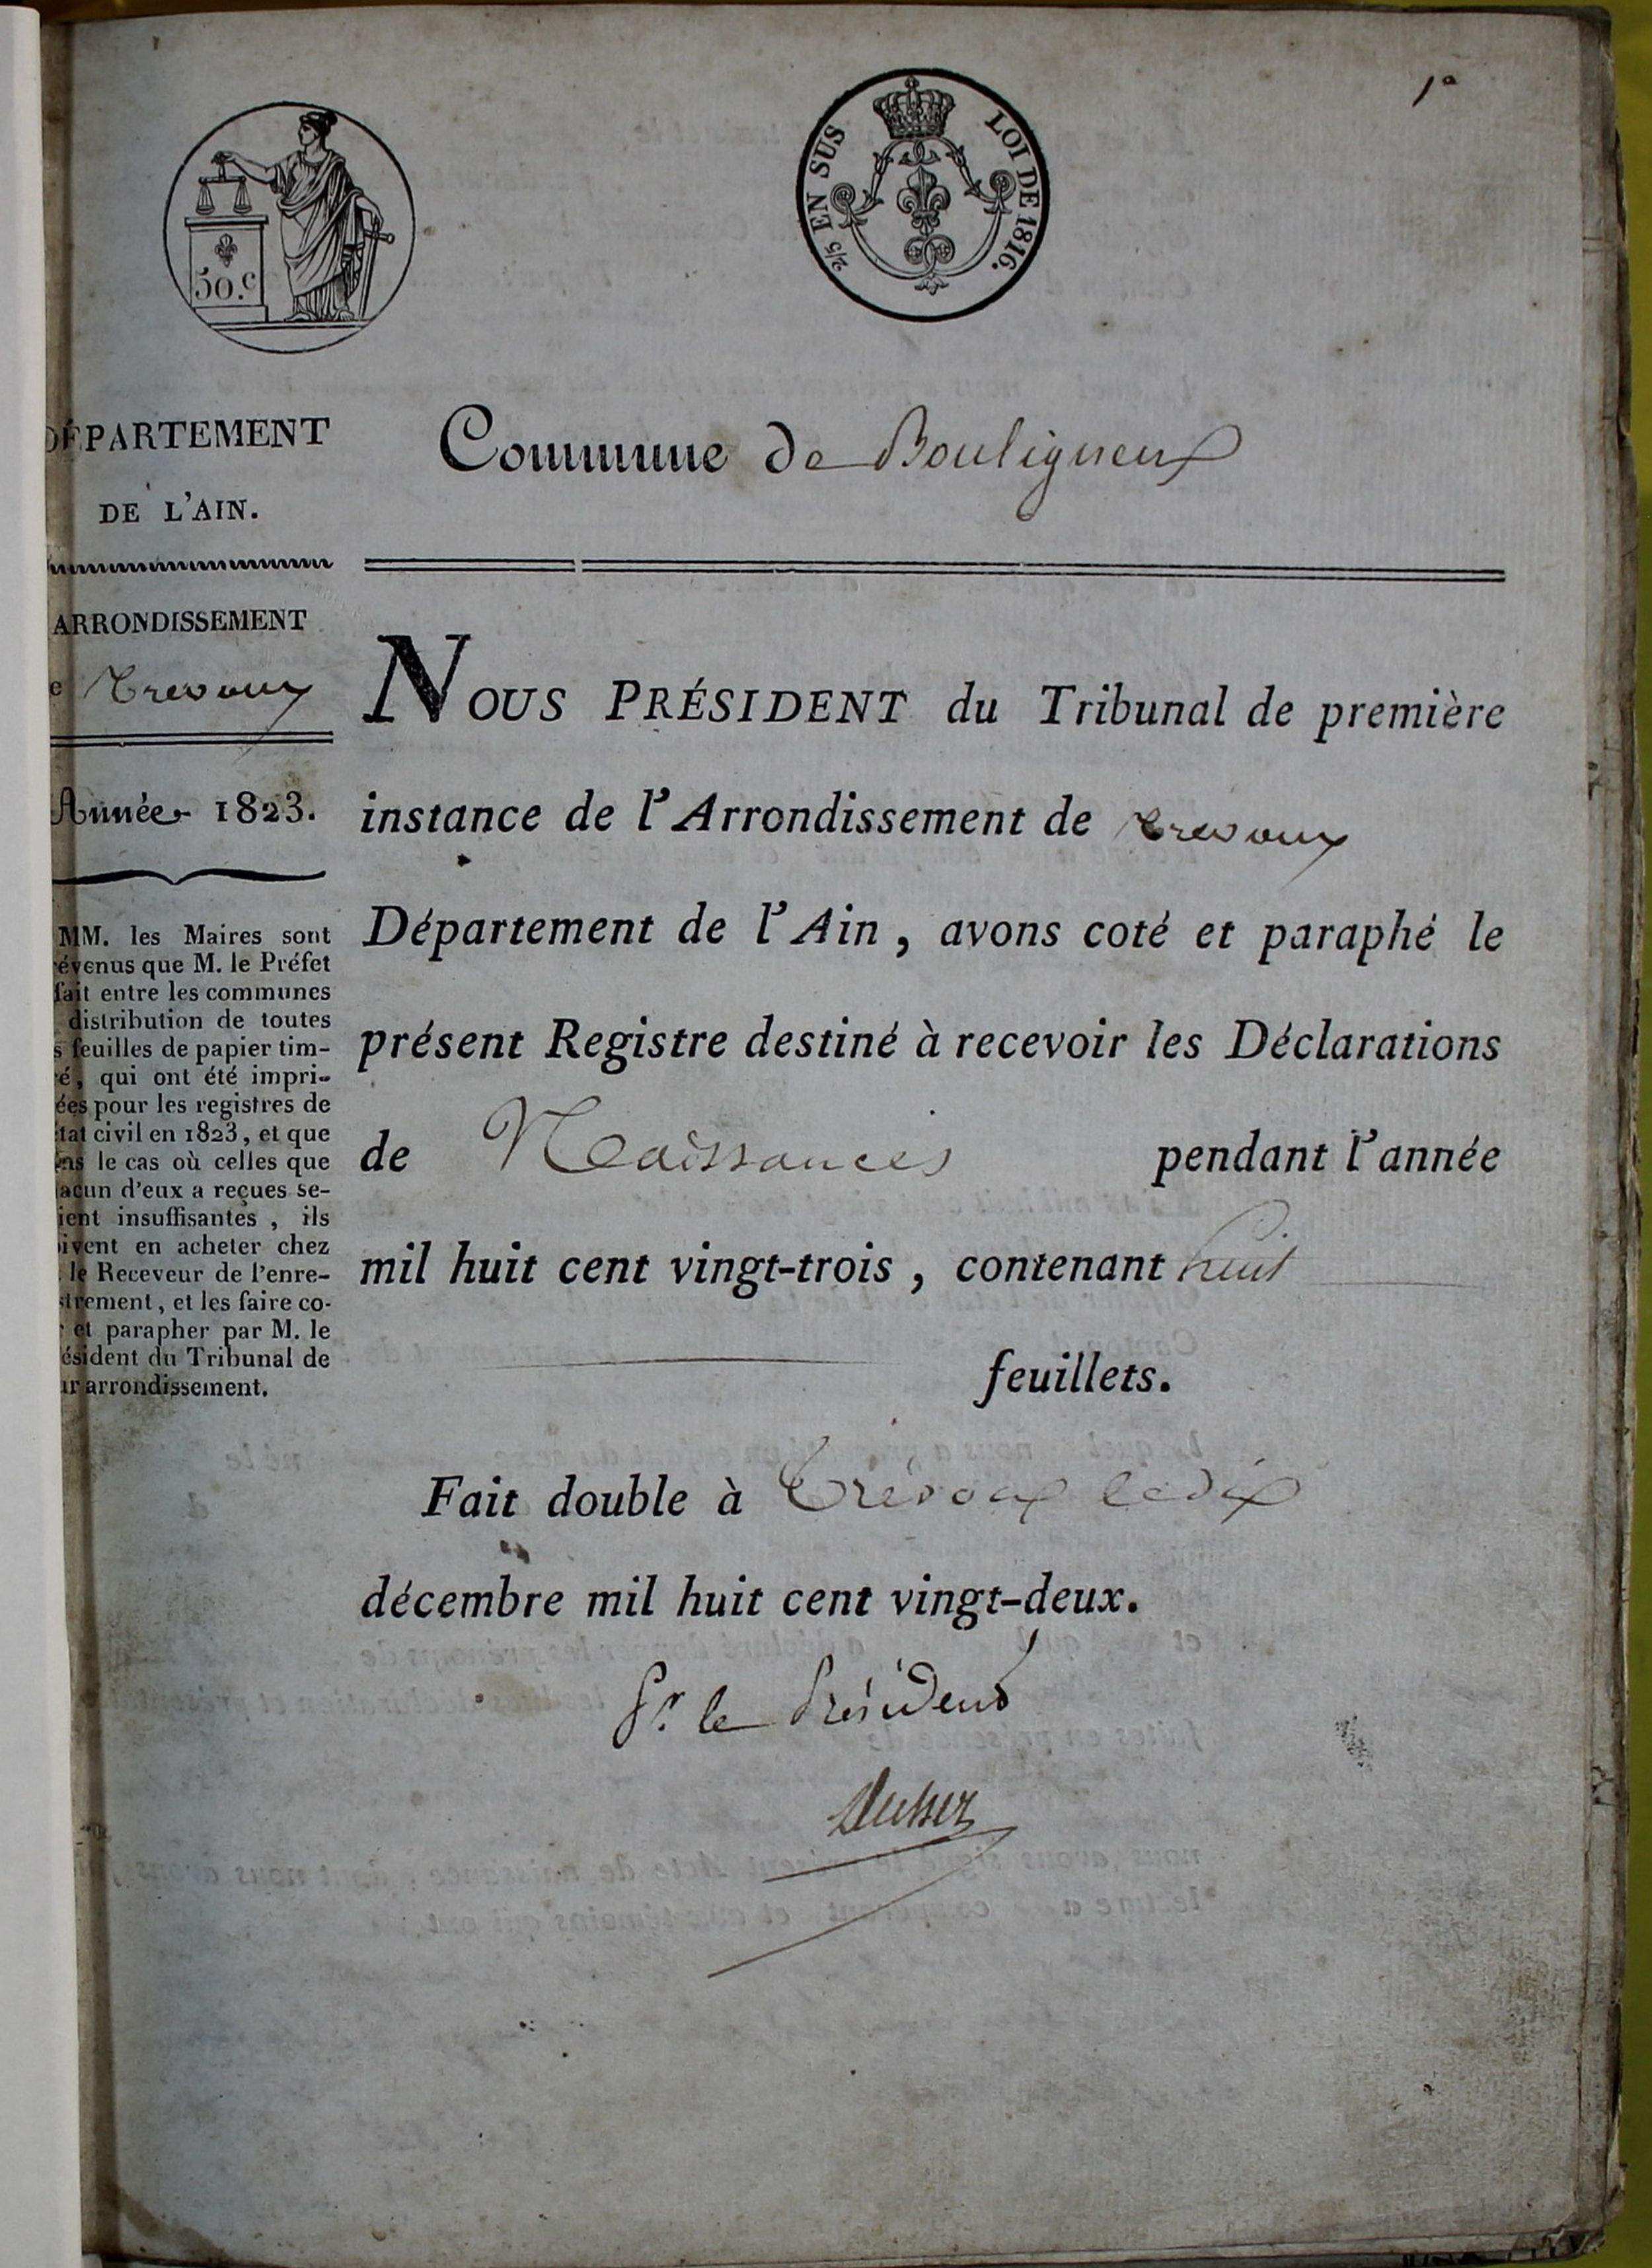 1º
50.c
2/5 EN SUS
LOI DE 1816.
DÉPARTEMENT
DE L'AIN.
ARRONDISSEMENT
e Trevoux
Année 1823.
MM. les Maires sont
révenus que M. le Préfet
fait entre les communes
distribution de toutes
s feuilles de papier tim-
ré, qui ont été impri-
ées pour les registres de
état civil en 1823, et que
ans le cas où celles que
acun d'eux a reçues se-
ient insuffisantes, ils
oivent en acheter chez
. le Receveur de l'enre-
strement, et les faire co-
r et parapher par M. le
résident du Tribunal de
ur arrondissement.
Commune de Bouligneux
NOUS PRÉSIDENT du Tribunal de première
instance de l'Arrondissement de Trevoux
Département de l'Ain, avons coté et paraphé le
présent Registre destiné à recevoir les Déclarations
de Naissances pendant l'année
mil huit cent vingt-trois, contenant huit
feuillets.
Fait double à Trévoux le dix
décembre mil huit cent vingt-deux.
Pr. le Président